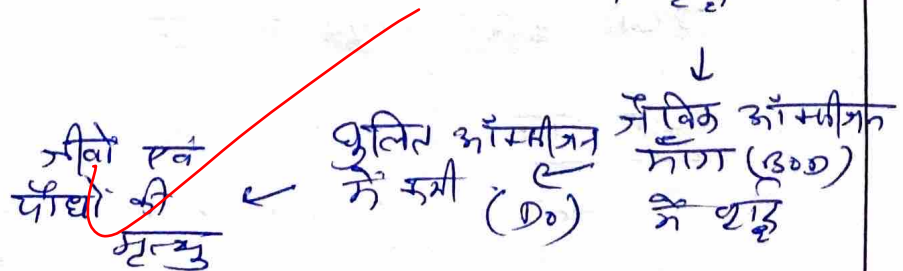 ↓
जैविक ऑक्सीजन
माँग (BOD)
में वृद्धि
←
घुलित ऑक्सीजन
में कमी (DO)
←
जीवों एवं
पौधों की
मृत्यु